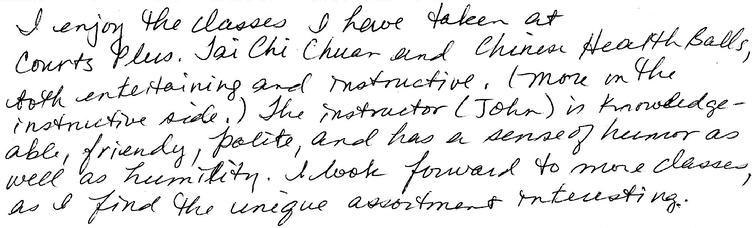 I enjoy the classes I have taken at
Courts Plus. Tai Chi Chuan and Chinese Health Balls,
both entertaining and instructive. (more on the
instructive side.) The instructor (John) is knowledge-
able, friendly, polite, and has a sense of humor as
well as humility. I look forward to more classes,
as I find the unique assortment interesting.